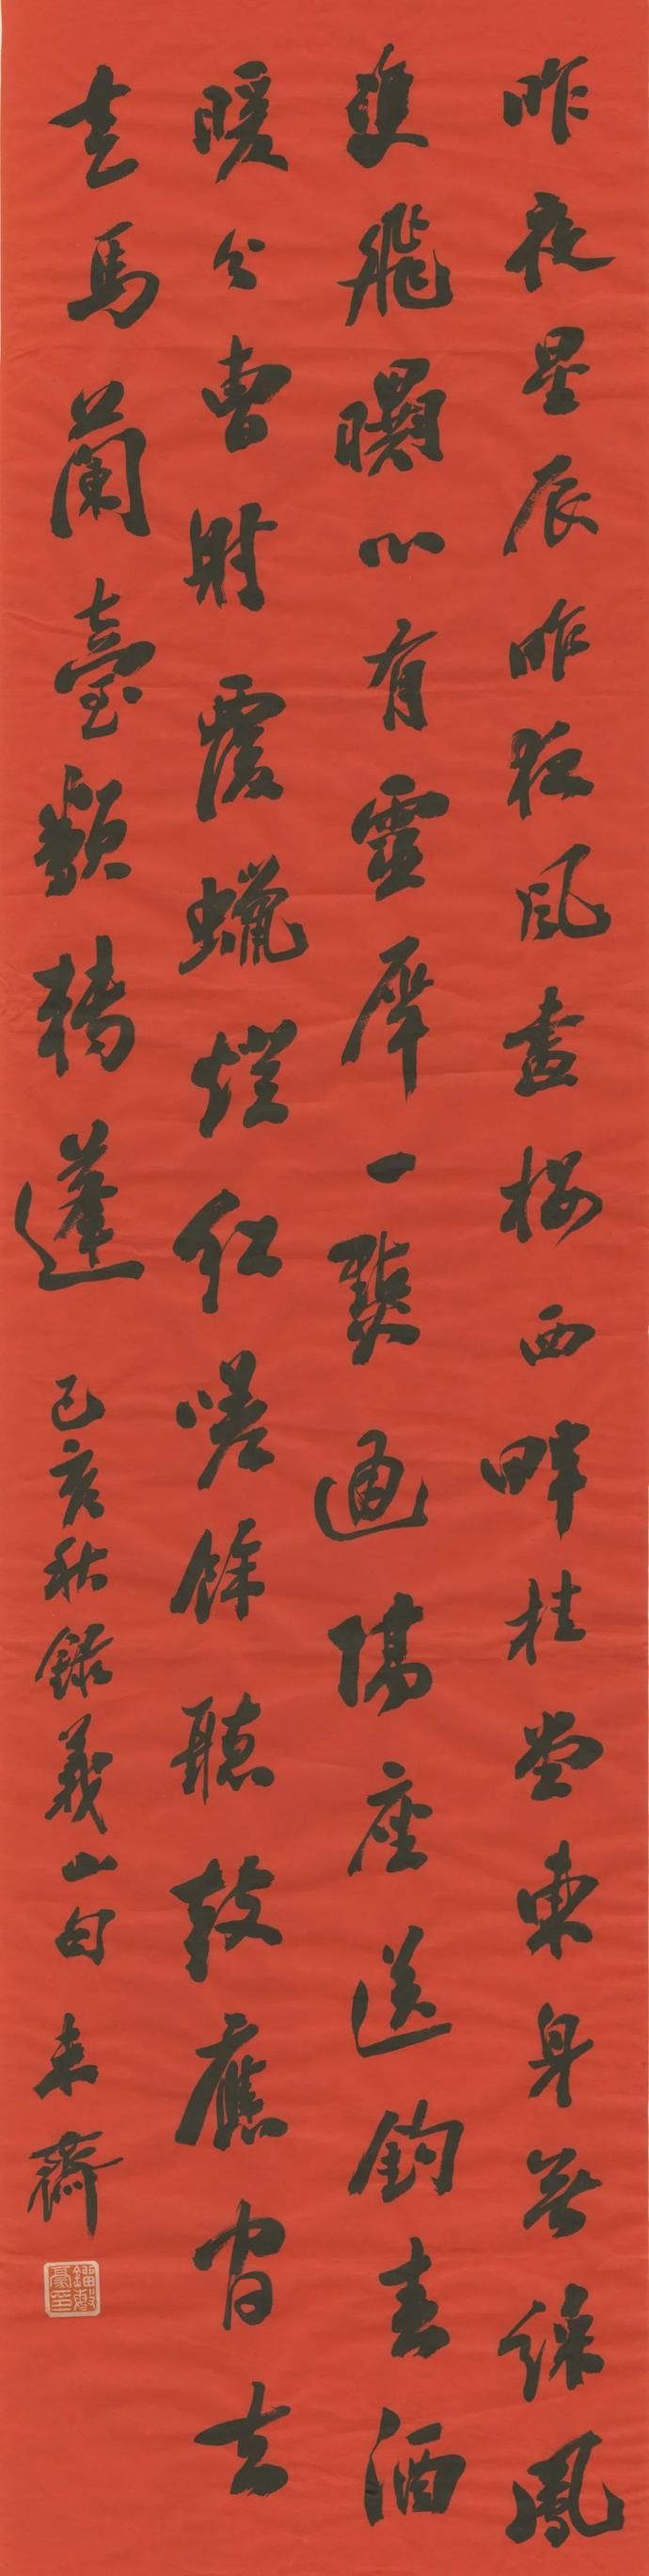 昨夜星辰昨夜風畫樓西畔桂堂東身無綵鳳
雙飛翼心有靈犀一點通隔座送鉤春酒
暖分曹射覆蠟燈紅嗟餘聽鼓應官去
走馬蘭臺類轉蓬 己亥秋錄義山句 齋